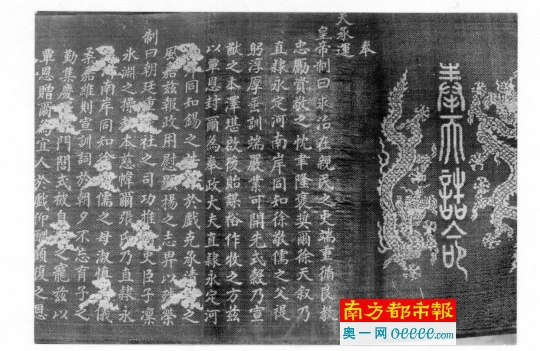 奉天誥命
奉
天承運
皇帝制曰求治在親民之吏端重循良教
忠勵資敬之忱聿隆褒奬爾徐天叙乃
直隸永定河南岸同知徐敬儒之父禔
躬淳厚垂訓端嚴業可開先式穀乃宣
猷之本澤堪啟後貽謀裕作牧之方茲
以覃恩封爾為奉政大夫直隸永定河
岸同知錫之於戲克承清
風嘉茲報政用慰揚之志畀以榮
制曰朝廷重社之司功推吏臣子凜
冰淵之操本慈幃爾張乃直隸永
南岸同知徐儒之母淑慎儀
柔嘉維則宣訓詞於朝夕不忘育子之
勤集慶門閭式被自之寵茲以
覃恩贈爾宜人於戲仰顧復之恩
南方都市報
奥一网 oeeee.com